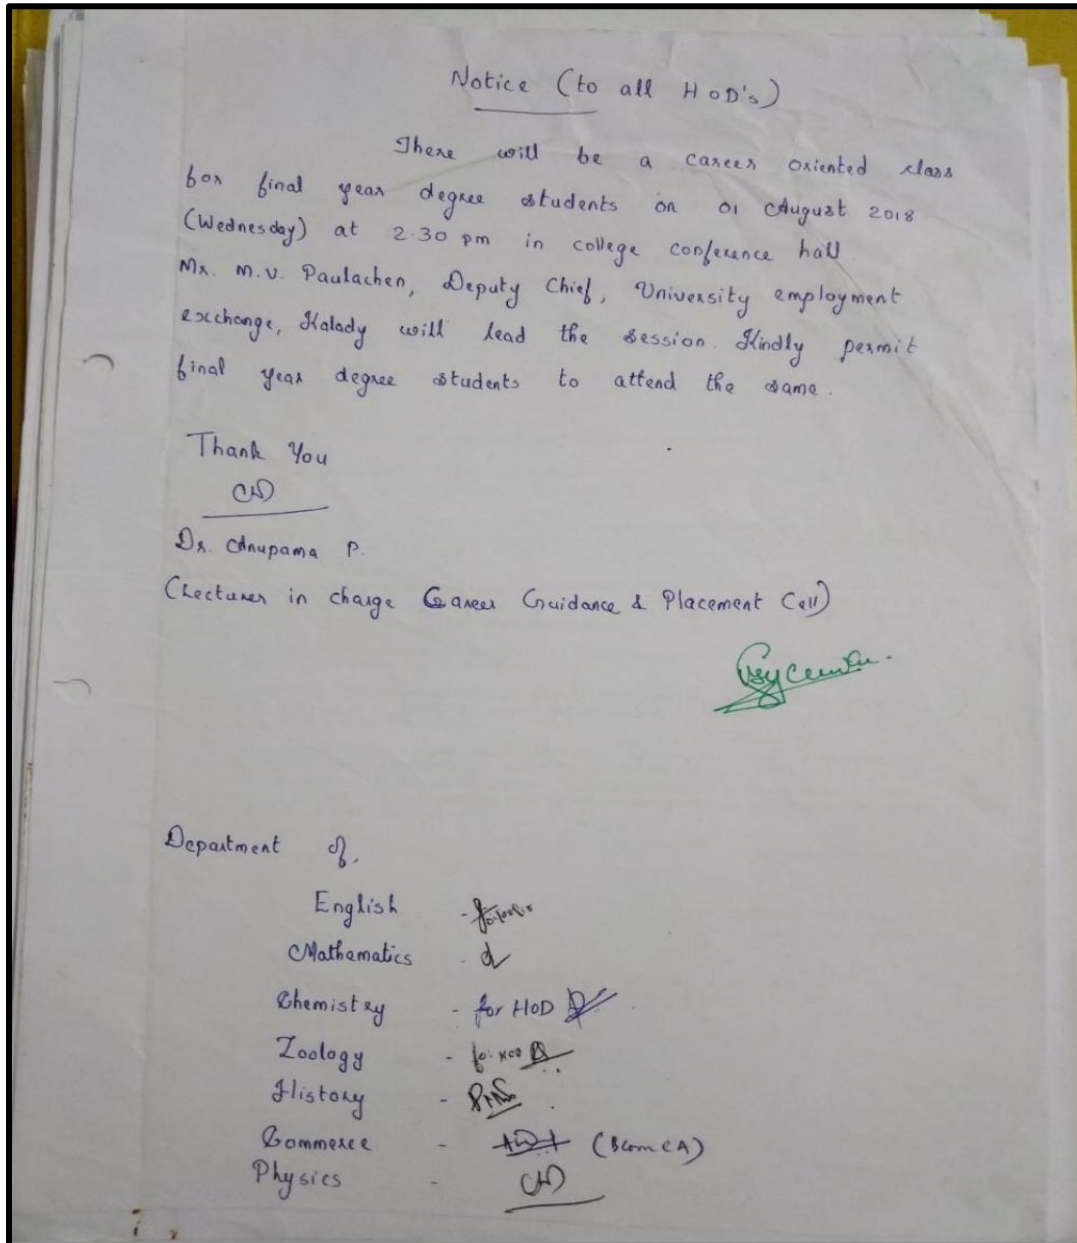 Notice (to all HOD's)
There will be a career oriented class
for final year degree students on 01 August 2018
(Wednesday) at 2.30 pm in college conference hall.
Mr. M.V. Paulachen, Deputy Chief, University employment
exchange, Kalady will lead the session. Kindly permit
final year degree students to attend the same.
Thank You
Dr. Anupama P.
(Lecturer in charge Career Guidance & Placement Cell)
Department of,
English -
Mathematics -
Chemistry - for HOD
Zoology - for HOD
History -
Commerce - (BComCA)
Physics -